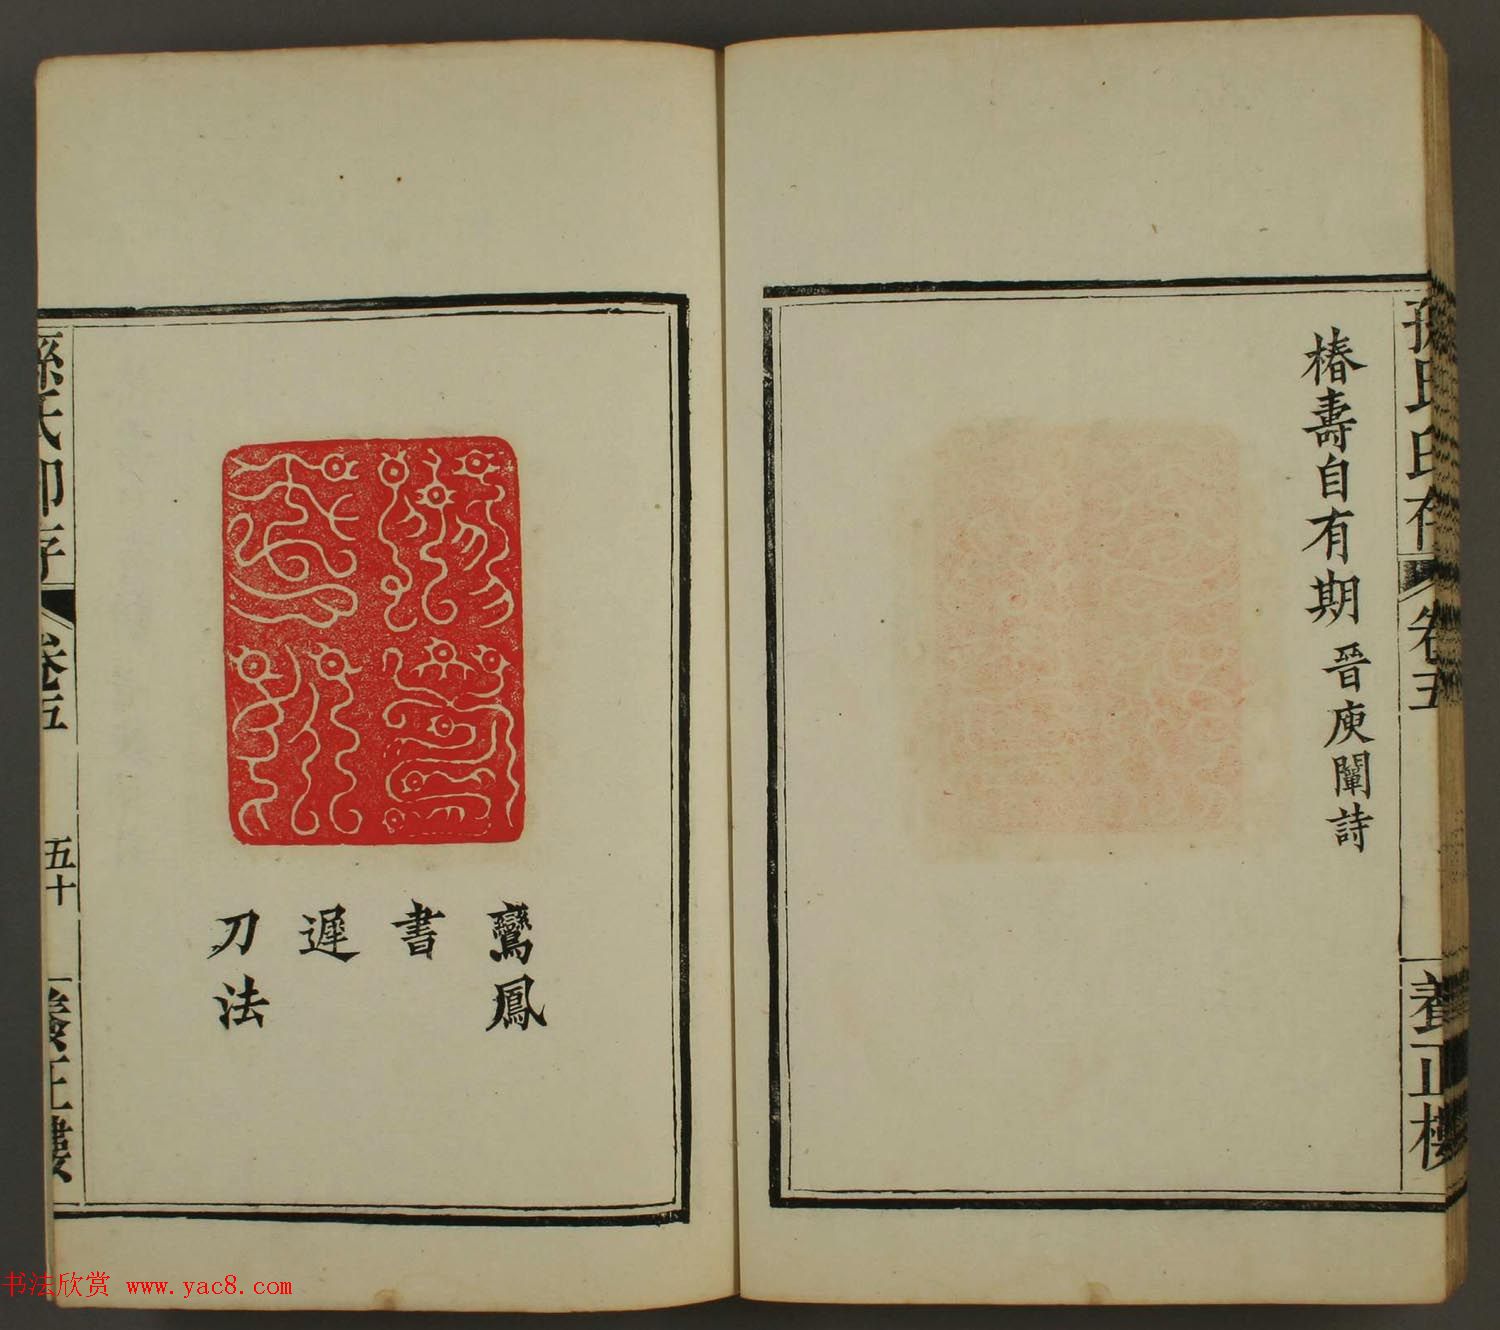 椿壽自有期 晉庾闡詩
孫氏印存
卷五
養正樓
鸞鳳
書
遲
刀法
孫氏印存
卷五
五十
養正樓
书法欣赏 www.yac8.com